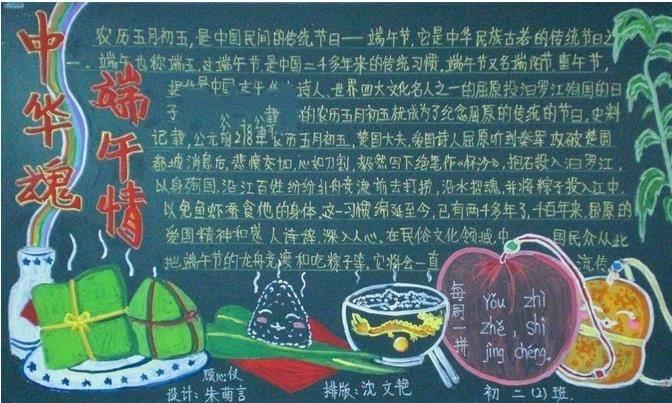 中华魂
端午情
农历五月初五,是中国民间的传统节日——端午节,它是中华民族古老的传统节日之
一。端午也称端五,
端午节是中国二千多年来的传统习惯,
端午节又名端阳节 重午节,
诗人、世界四大文化名人之一的屈原投汨罗江殉国的日
子
的农历五月初五就成为了纪念屈原的传统的节日。史料
记载,公元前278年农历五月初五,楚国大夫、爱国诗人屈原听到秦军攻破楚国
都城消息后,悲愤交加,心如刀割,毅然写下绝笔作《怀沙》,抱石投入汨罗江,
以身殉国。沿江百姓纷纷引舟竞渡前去打捞,沿水招魂,并将粽子投入江中,
以免鱼虾蚕食他的身体。这一习惯绵延至今,已有两千多年了,千百年来,屈原的
爱国精神和感人诗辞,深入人心。在民俗文化领域,中
国民众从此
把端午节的龙舟竞渡和吃粽子等,它将会一直
流传
每周一拼
Yǒu zhì
zhě, shì
jìng chéng.
设计:
朱萌言
排版:沈文艳
初二(2)班